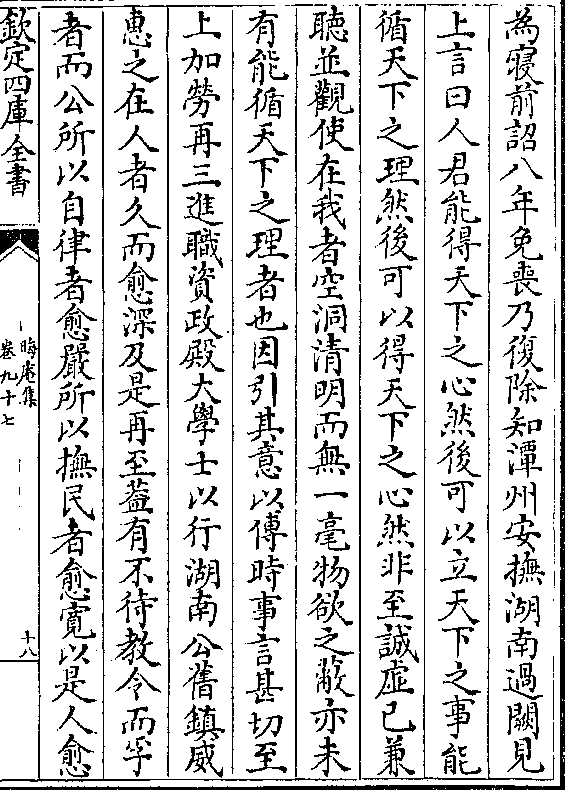 為寢前詔八年免喪乃復除知潭州安撫湖南過闕見
上言曰人君能得天下之心然後可以立天下之事能
循天下之理然後可以得天下之心然非至誠虛已兼
聽並觀使在我者空洞清明而無一毫物欲之蔽亦未
有能循天下之理者也因引其意以傅時事言甚切至
上加勞再三進職資政殿大學士以行湖南公舊鎮威
惠之在人者久而愈深及是再至葢有不待教令而孚
者而公所以自律者愈嚴所以撫民者愈寛以是人愈
欽定四庫全書
晦庵集
卷九十七
十八